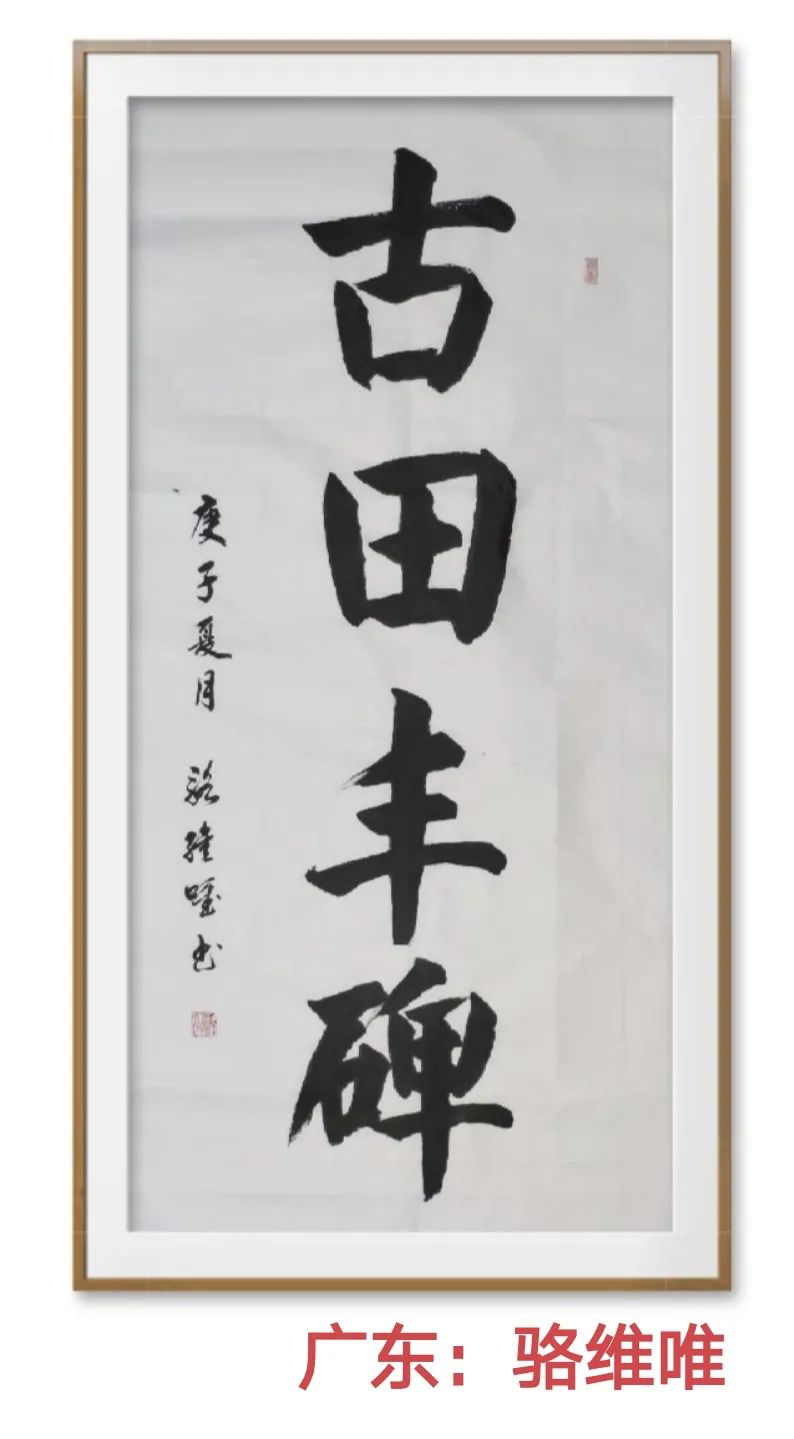 古田丰碑
庚子夏月 骆維唯书
广东：骆维唯